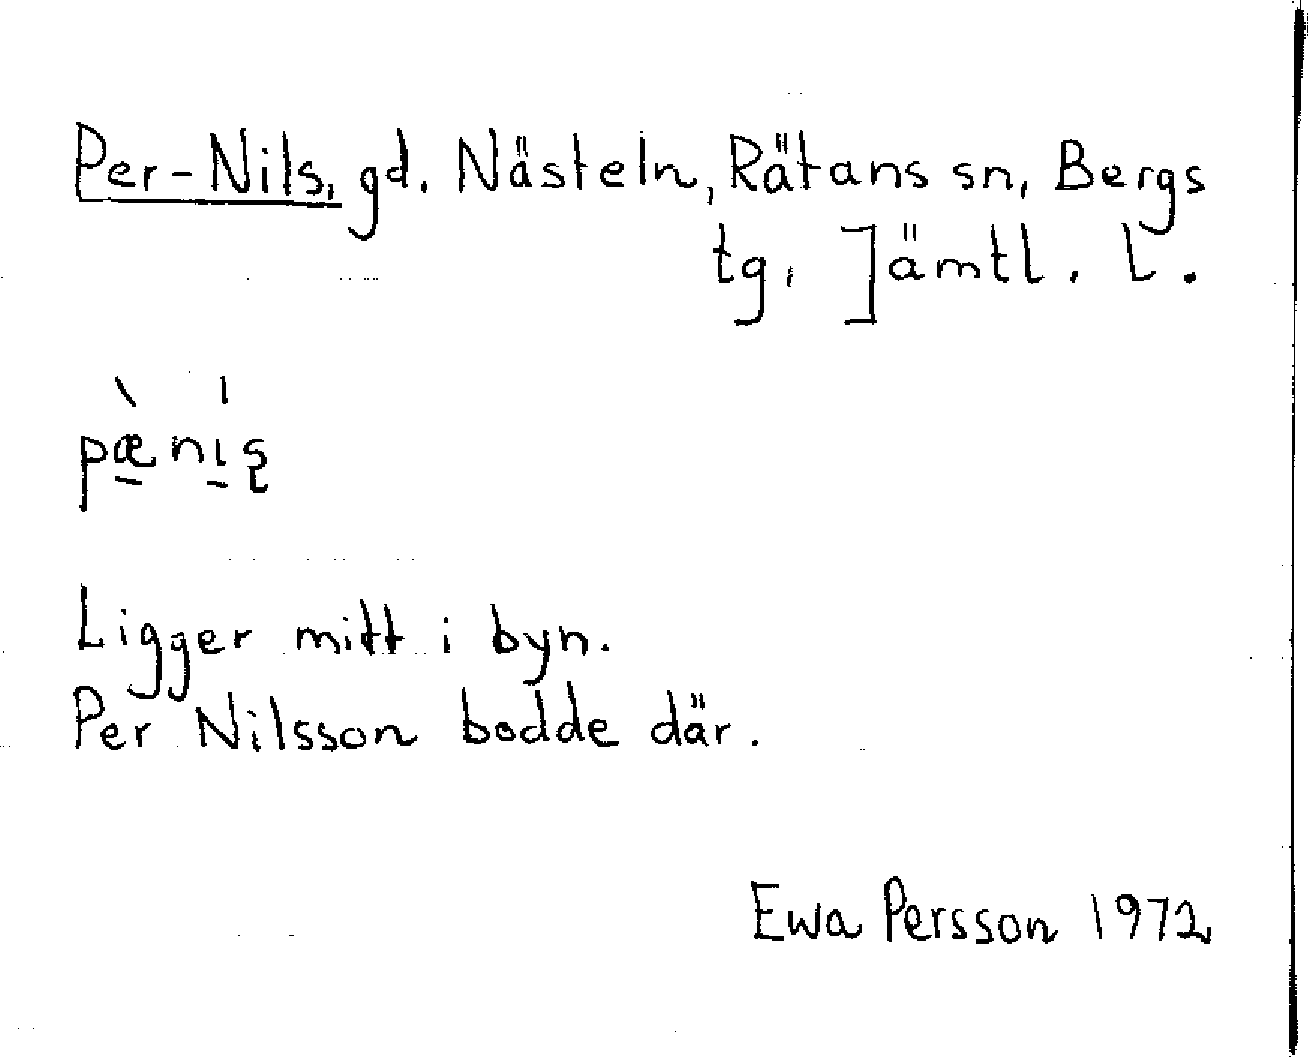 Per-Nils, gd. Nästeln, Rätans sn, Bergs
tg, Jämtl. L.
pæ̠̀nı̠́ʂ
Ligger mitt i byn.
Per Nilsson bodde där.
Ewa Persson 1972